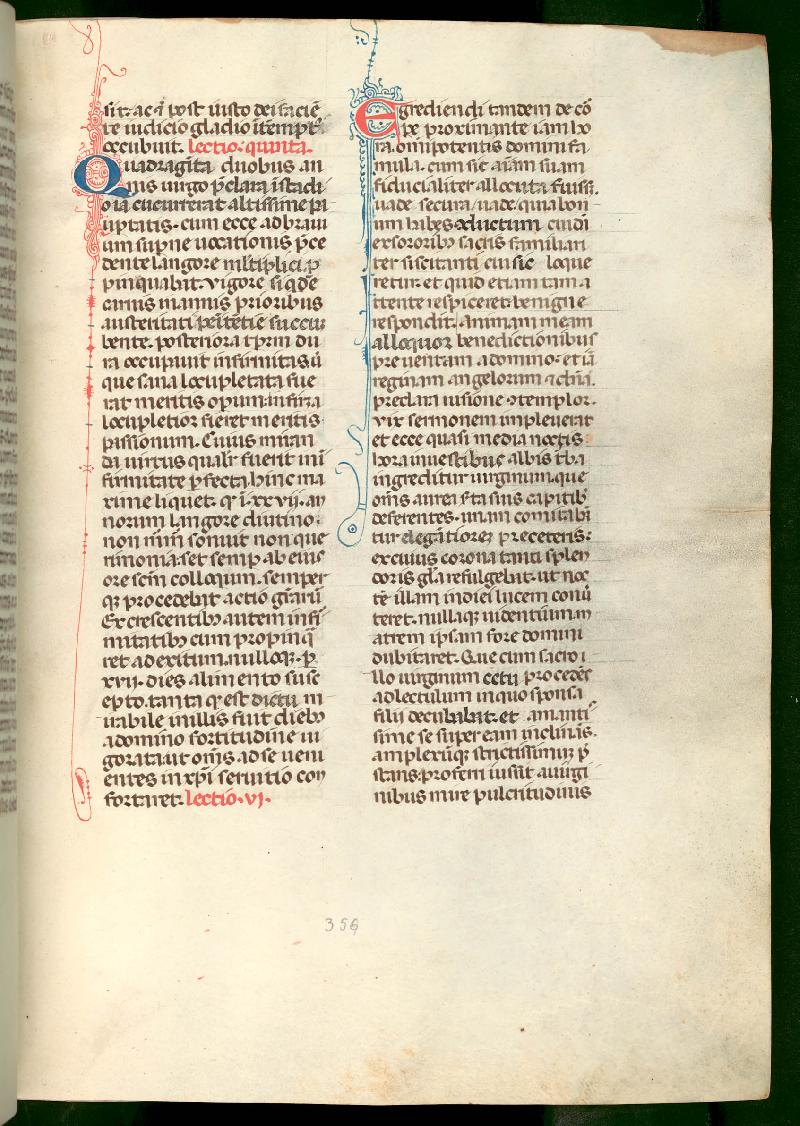 sit. ac ꝗ post iusto dei facie͂
te iudicio gladio ite͂mpt᷒
occubuit. lectio. quinta.
Quadragi͂ta duobus an
nis uirgo p̄clara i͂stadi
o ia cucurrerat altissime pa
uptatis. cum ecce ad braui
um sup̄ne uocationis p̄ce
dente langore mltiplici. ꝓ
pinquabat. vigore siq̄de͂
carnis in annis prioribus
austeritati penite͂tie succu͂
bente. posteriora tp̄m du
ra occupauit infirmitas. u͂
que sana locupletata fue
rat meritis operum. infirma
locupletior fieret meritis
passionum. Cuius miran
da uirtus qualit᷒ fuerit in i͂
firmitate ꝑfecta. hinc ma
xime liquet. ꝙ i͂. xx vij. an
norum langore diutino.
non murmur sonuit non que
rimonia. set semꝑ ab eius
ore scm̄ colloquium. semper
qꝫ procedebat actio gr̄arum
Excrescentibꝫ autem infir
mitatibꝫ cum propinq̄
ret ad exitum. nulloqꝫ. ꝑ
xvij. dies alimento susc
epto. tanta qꝫ est dictu mi
rabile in illis fuit diebꝫ
a domino fortitudine ui
gorata. ut om̄s ad se ueni
entes in xp̄i seruitio con
fortaret. lectio. vj.
Egrediendi tandem de co͂
pe proximante iam ho
ra. omnipotentis domini fa
mula. cum sic ai͂am suam
fiducialiter allocuta fuiss᷒.
uade secura. uade. quia bon
um habes ductum cuidi
ex sororibꝫ sacris familiari
ter siscitanti cui sic loque
retur. et quid etiam tam a
ttente respiceret. benigne
respondit. animam meam
alloquor benedictionibus
preuentam a domino. et u͂
reginam angelorum
preclara uisione
vix sermonem impleuerat
et ecce quasi media noctis
hora in uestibus albis t᷒ba
ingreditur uirginum. que
om̄s aurea s͂ta suis capitibꝫ
deferentes. unam comitaba͂
tur elegantiorem pre ceteris.
ex cuius corona tanti splen
doris gl͂a refulgebat. ut noc
te͂ illam in diei lucem conu͂
teret. nullaqꝫ uidentium. m
atrem ipsam fore domini
dubitaret. Que cum sacro i
llo uirginum cetu procede͂s
ad lectulum in quo sponsa
filii decubabat. et amanti
sime se super eam inclinans.
amplexuqꝫ strictissimum p̄
stans. proferri iussit a uirgi
nibus mire pulcritudinis